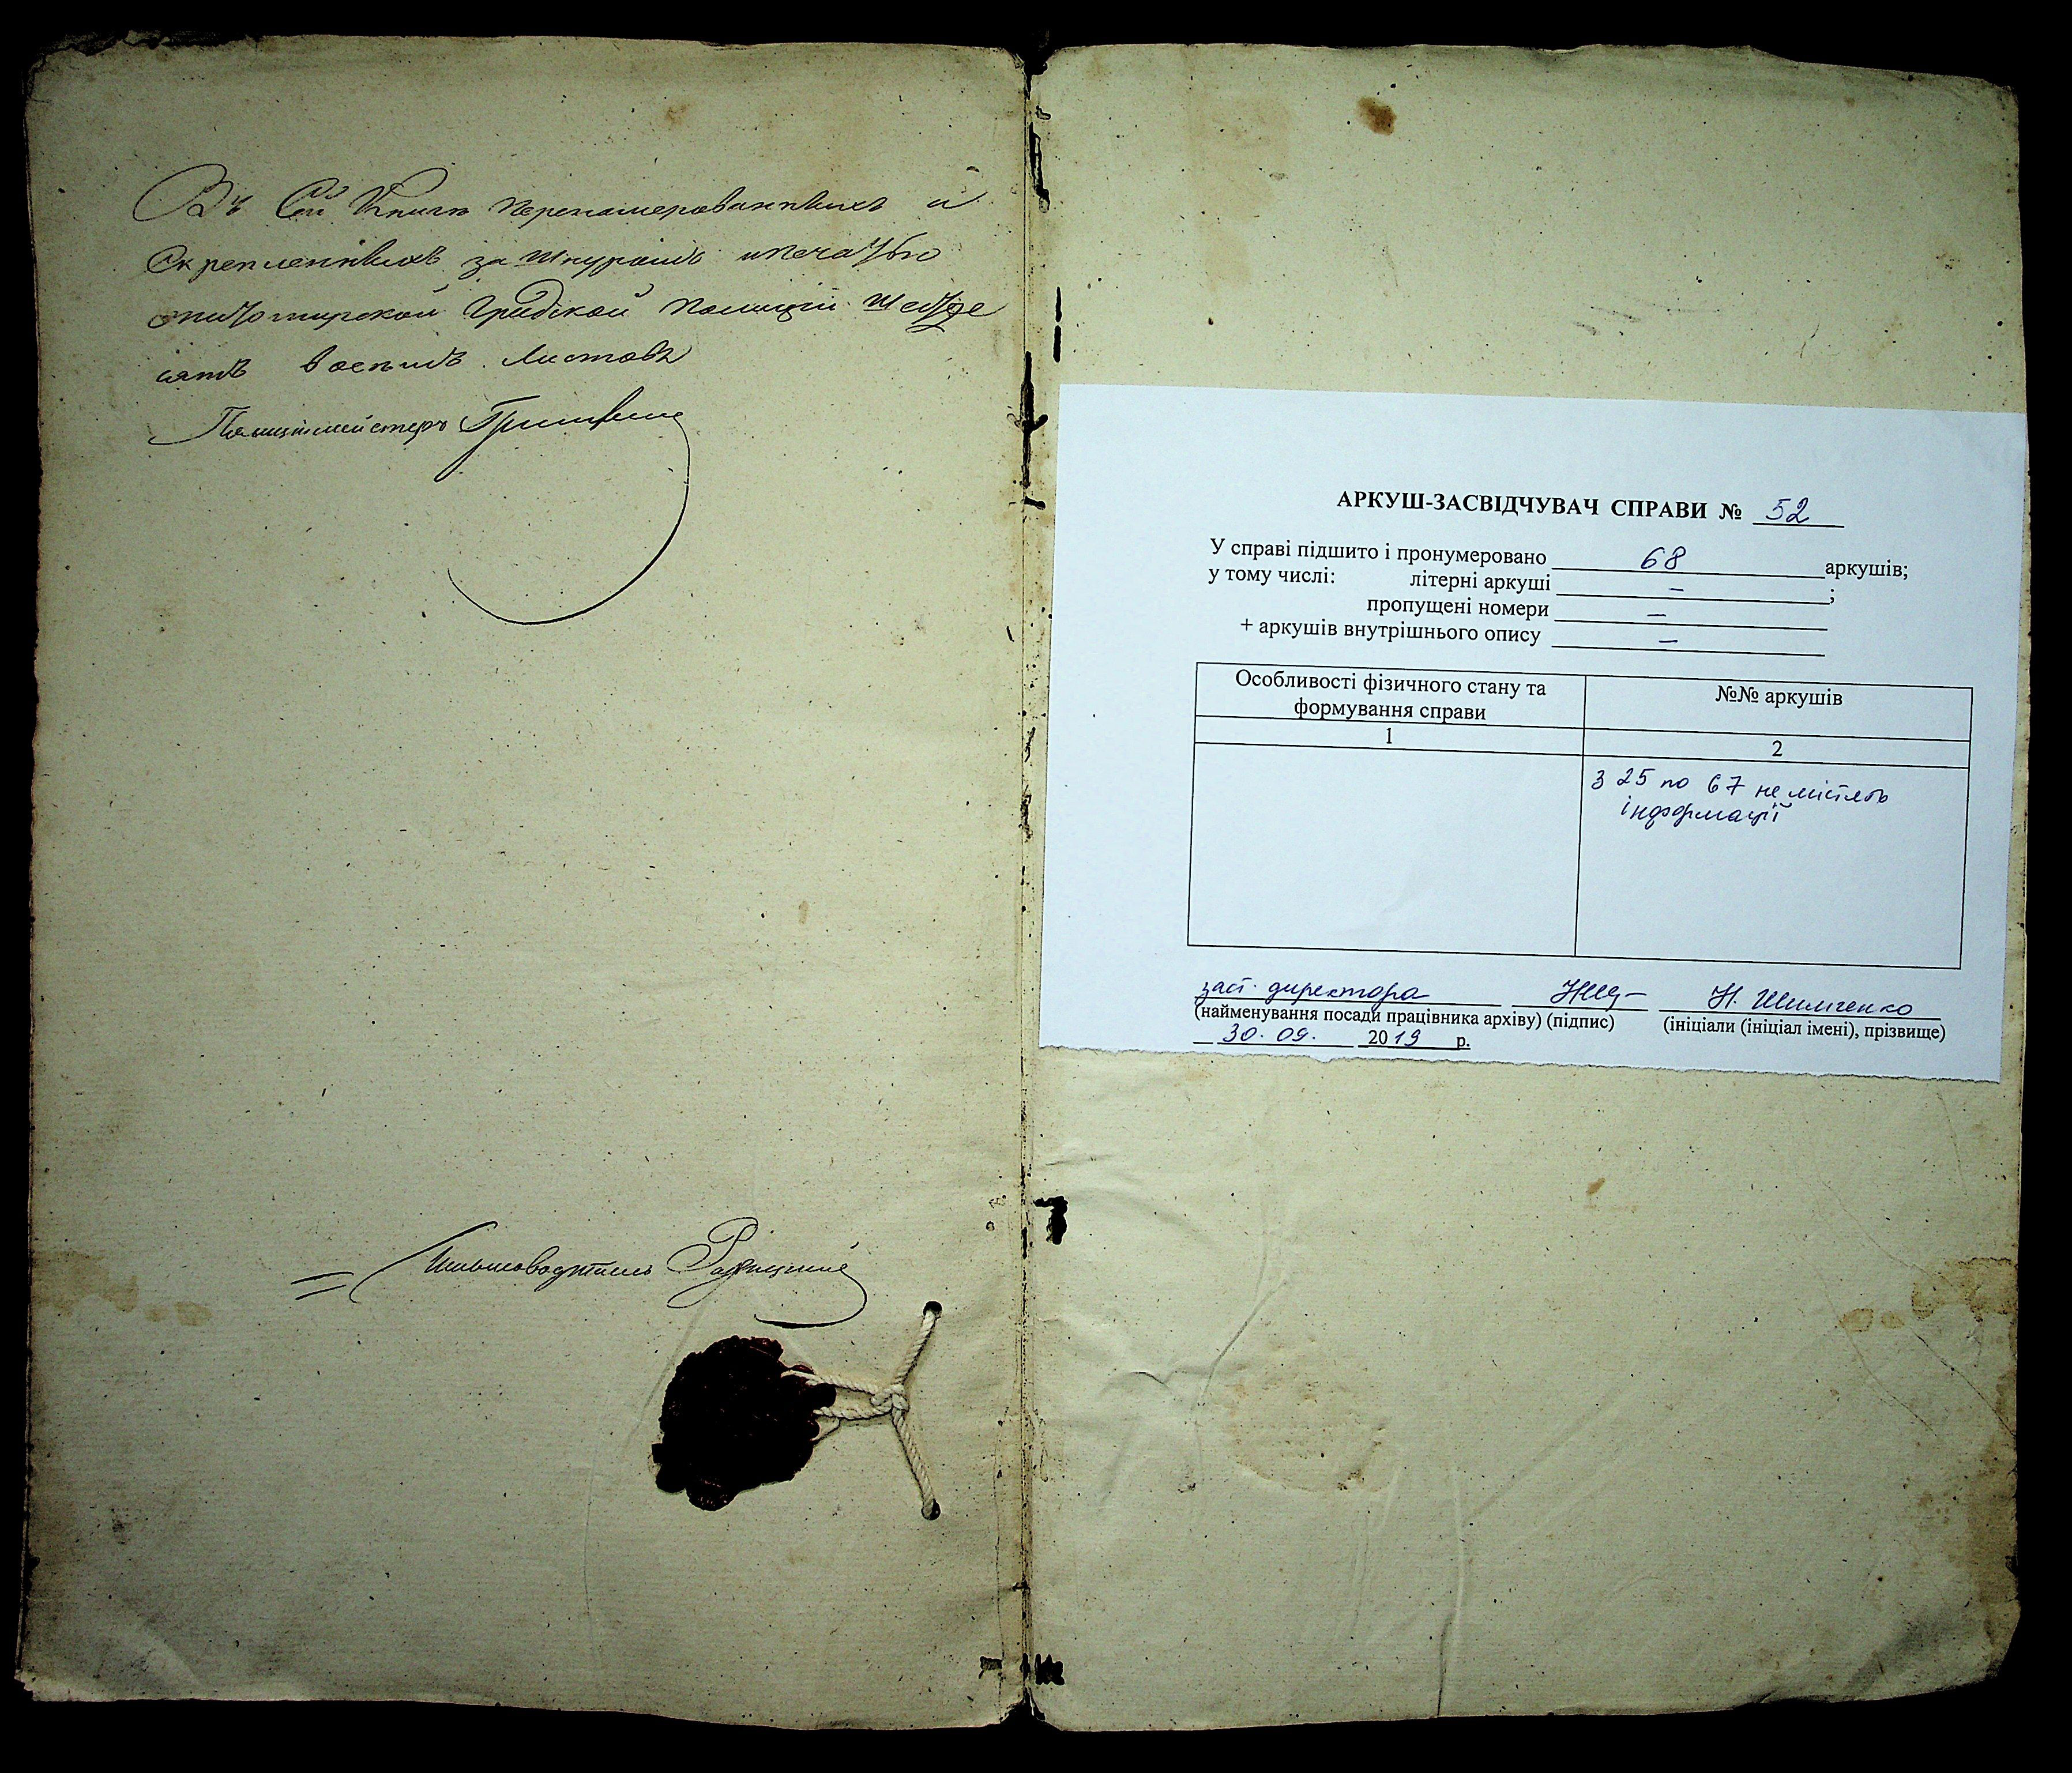 Въ Сей Книге перенамерованныхъ и
Скрепленныхъ за шнуромъ и печатью
житомирской Градской Полиціи шестьде
сятъ восемь листовъ
Полиціймейстеръ
Письмоводитель
АРКУШ-ЗАСВІДЧУВАЧ СПРАВИ № 52
У справі підшито і пронумеровано 68 аркушів;
у тому числі: літерні аркуші – ;
пропущені номери –
+ аркушів внутрішнього опису –
Особливості фізичного стану та
формування справи
№№ аркушів
1
2
з 25 по 67 не містять
інформації
заст. директора Н. Шимченко
(найменування посади працівника архіву) (підпис) (ініціали (ініціал імені), прізвище)
30. 09. 2019 р.